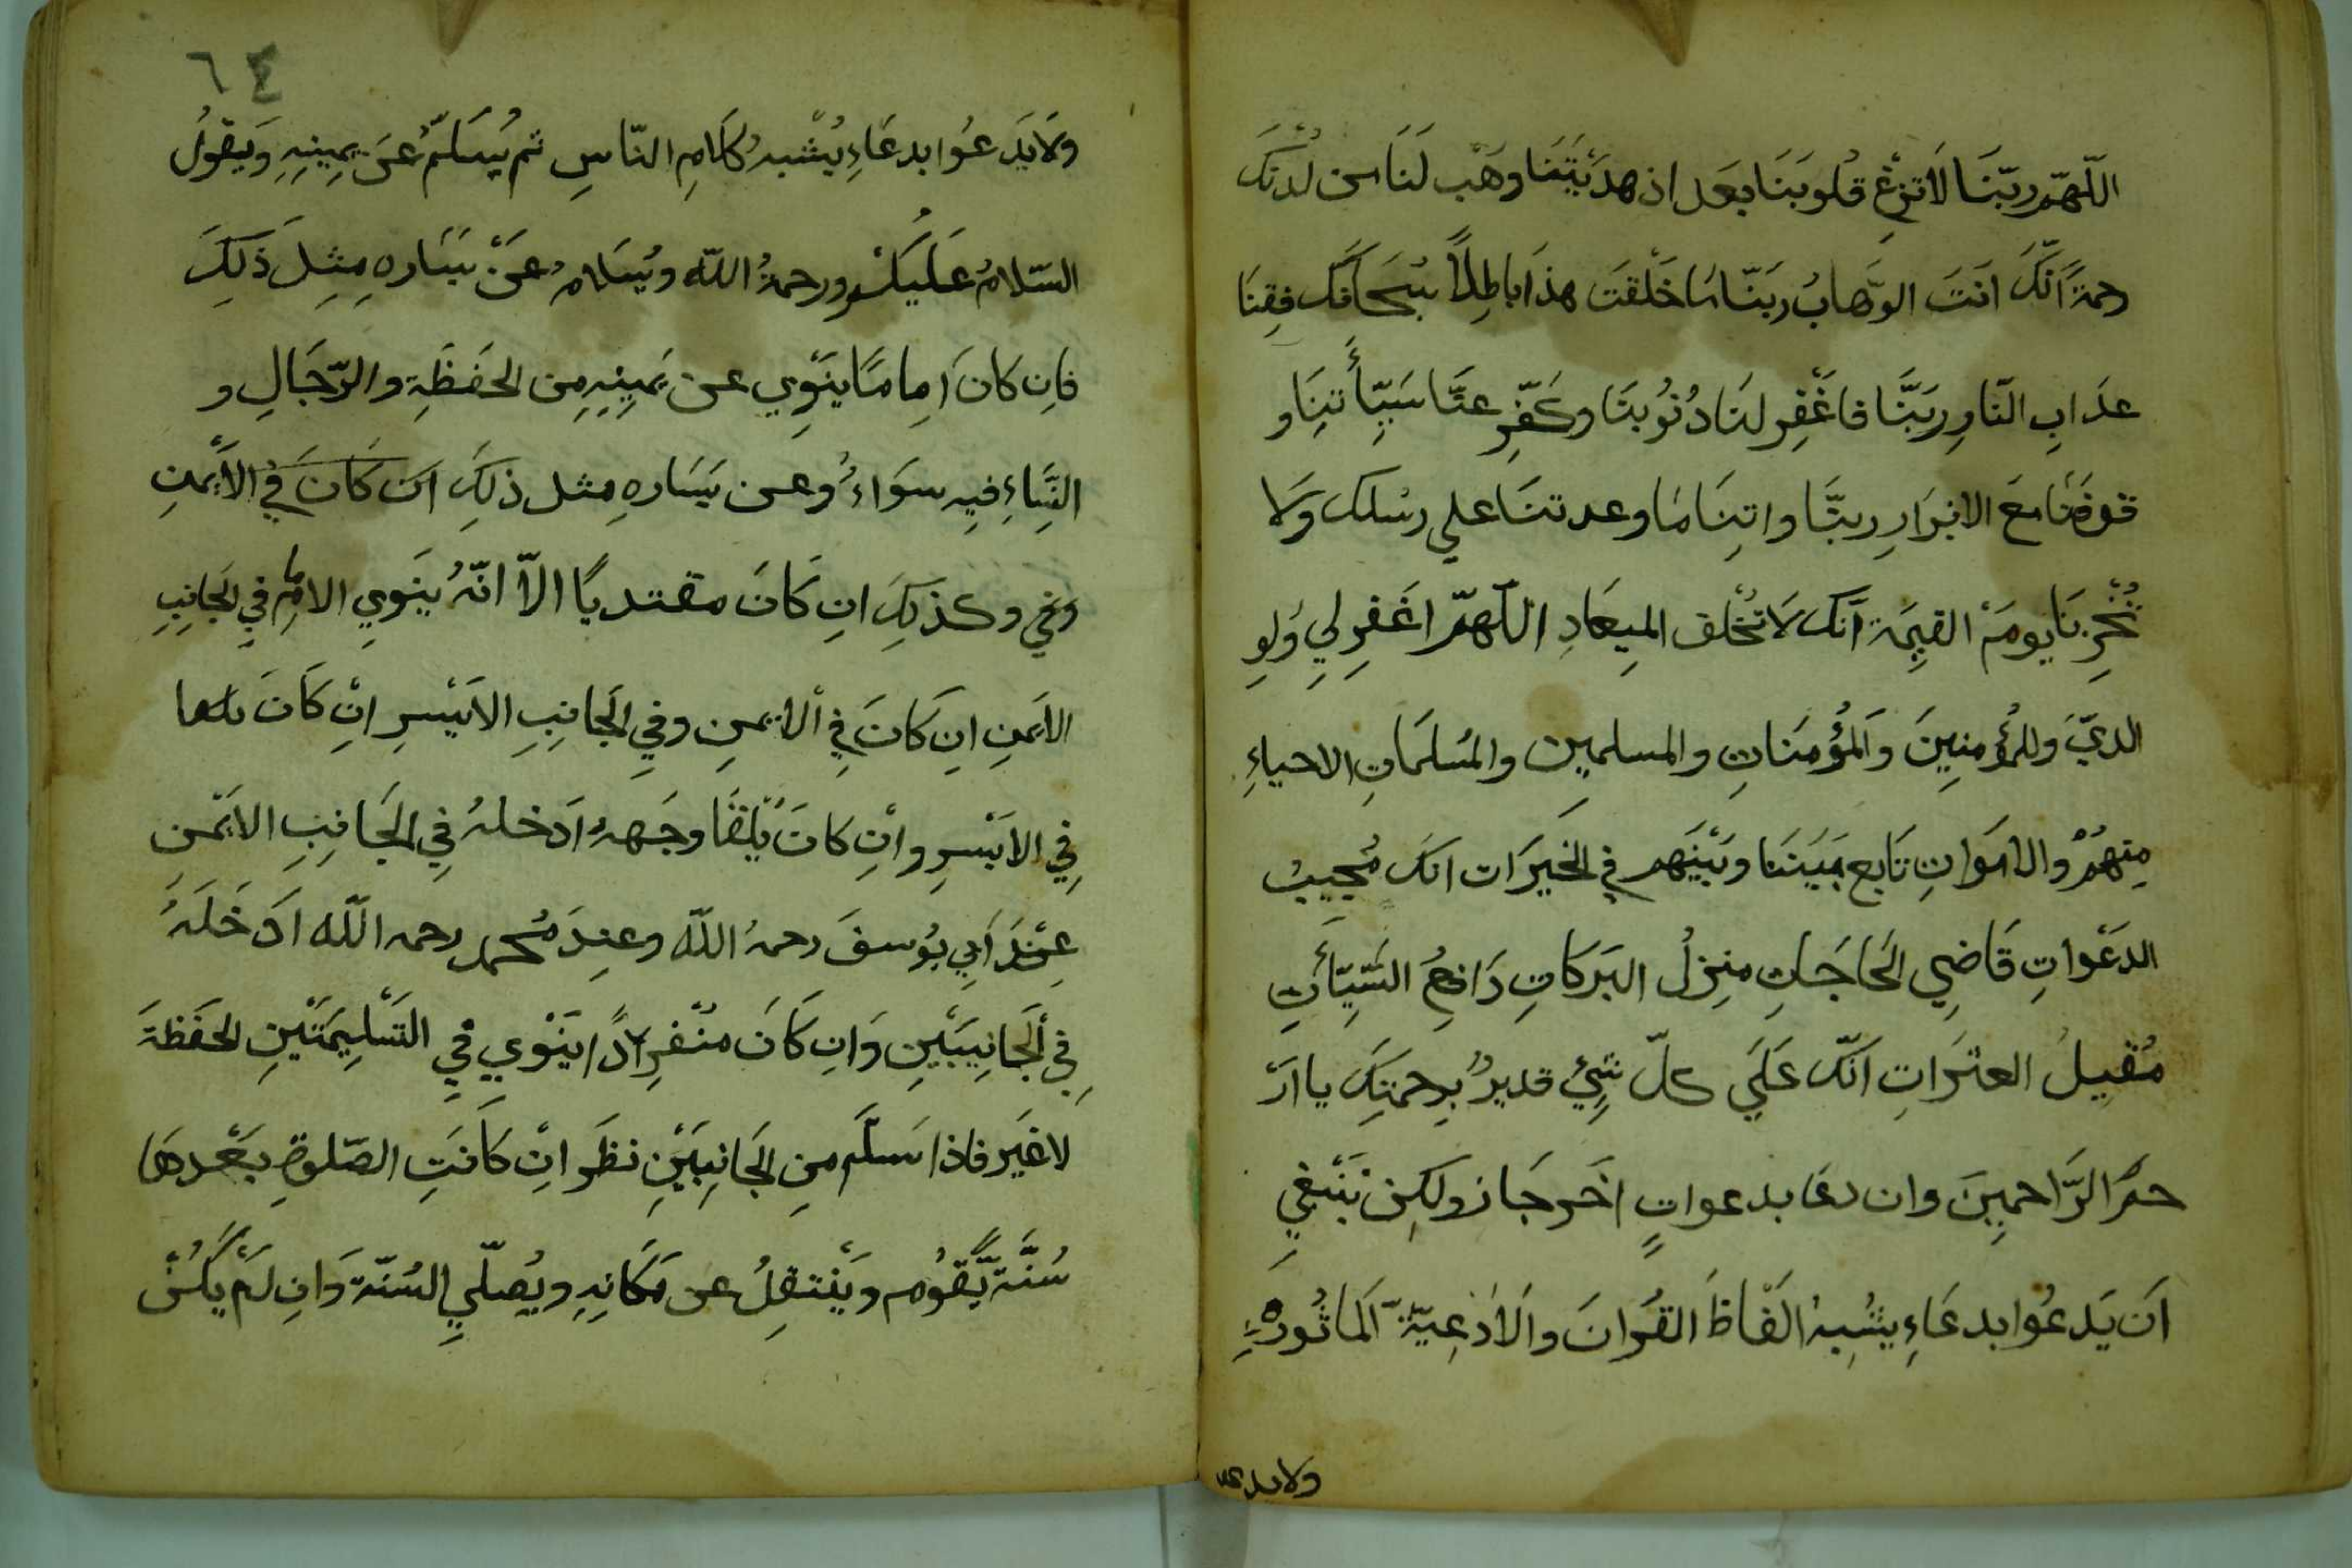 اللّهمّ ربّنَا لَا تزِغْ قُلوبَنَا بعَد اذ هدَيْتَنَا وَهَبْ لَنَا من لدُنْكَ
رحمَةً انّكَ انتَ الوَهّابُ رَبّنَا مَا خَلَقتَ هذَا باطِلاً سُبحَانَكَ فقِنَا
عذَابِ النّارِ رَبَّنَا فاغْفِر لنَا ذُنُوُبنَا وكَفّر عنَّا سَيِّأتنِا و
توفّنَا معَ الابْرَارِ ربنَّا واتِنَا مَا وعدتنَا علي رسُلك وَلَا
تُخْزِنَا يومَ القيِمَة انّكَ لَا تُخْلف المِيعَادِ اللّهمّ اغَفِر لِي وَلِو
الديّ وللمُؤْمنِينَ وَالمؤُمنَاتِ والمسلمِين والمُسلمَاتِ الاحياءِ
مِنهُمْ والامَواتِ تَابع بَيَننَا وبَيْنَهم في الخَيرَات انكَ مُجيبُ
الدعَواتِ قَاضِي الحَاجَاتِ منِزلُ البَركَاتِ دَافعُ السَّيِّئَاتِ
مُقيِلُ العثرَاتِ انّكَ عَلَي كلّ شَيْءٍ قديرٌ برحمتِكَ يا ارْ
حمَ الرَّاحمِينَ وان دعَا بدعواتٍ اخَر جَاز ولكِن يَنْبغي
اَن يَدعُوا بدعَاءِ يشُبِهُ الَفْاظَ القُرانَ والَادْعِيّةِ المَاثُورَةِ
ولايدعو
٦٤
ولَا يَدعُوا بدعَاءِ يُشْبهُ كَلَامِ النّاسِ ثم يُسَلمُّ عَن يمِينِهِ وَيَقوُلُ
السّلامُ عَليَكُمْ ورحمةُ اللّه ويُسَلامُ عَنْ يَسَارهِ مِثلَ ذَلِكَ
فاِن كانَ اِمامَا ينَوِي عن يَميِنِهِ مِن الحَفَظَةِ والرّجَالِ و
النِّسَاءِ فيِهِ سوَاءُ وعن يَسَارهِ مِثل ذلِكَ ان كَانَ في الأَيْمنِ
وفي وكذلِكَ انِ كَانَ مقتديًا الاّ انّهُ يَنوِي الامام في الجَانبِ
الايَمنِ انِ كَانَ في الايمنِ وفي الجَانِبِ الايَسرِ انِ كَانَ
في الايَسرِ وانِ كانَ تِلقَا وجَههِ ادَخلهُ في الجَانِبِ الايَمنِ
عِندَ اَبي يوُسفَ رحمهُ اللّه وعِندَ مُحمد رحمه اللّه ادَخَلَهُ
في الجَانِبَيْنِ وَانِ كَانَ مُنْفرِدًا يَنْوي في التَسْلِيمَتَيْنِ الحَفَظَةَ
لاغيَر فاذا سَلّمَ منِ الجَانِبَيْنِ نظَر انِ كَانَتِ الصّلوةِ بَعْدهَا
سُنَّة يَّقوُم ويَنْتقِلُ عن مَكَانِهِ ويُصلّيِ السُنّة وَانِ لَمْ يكُنْ